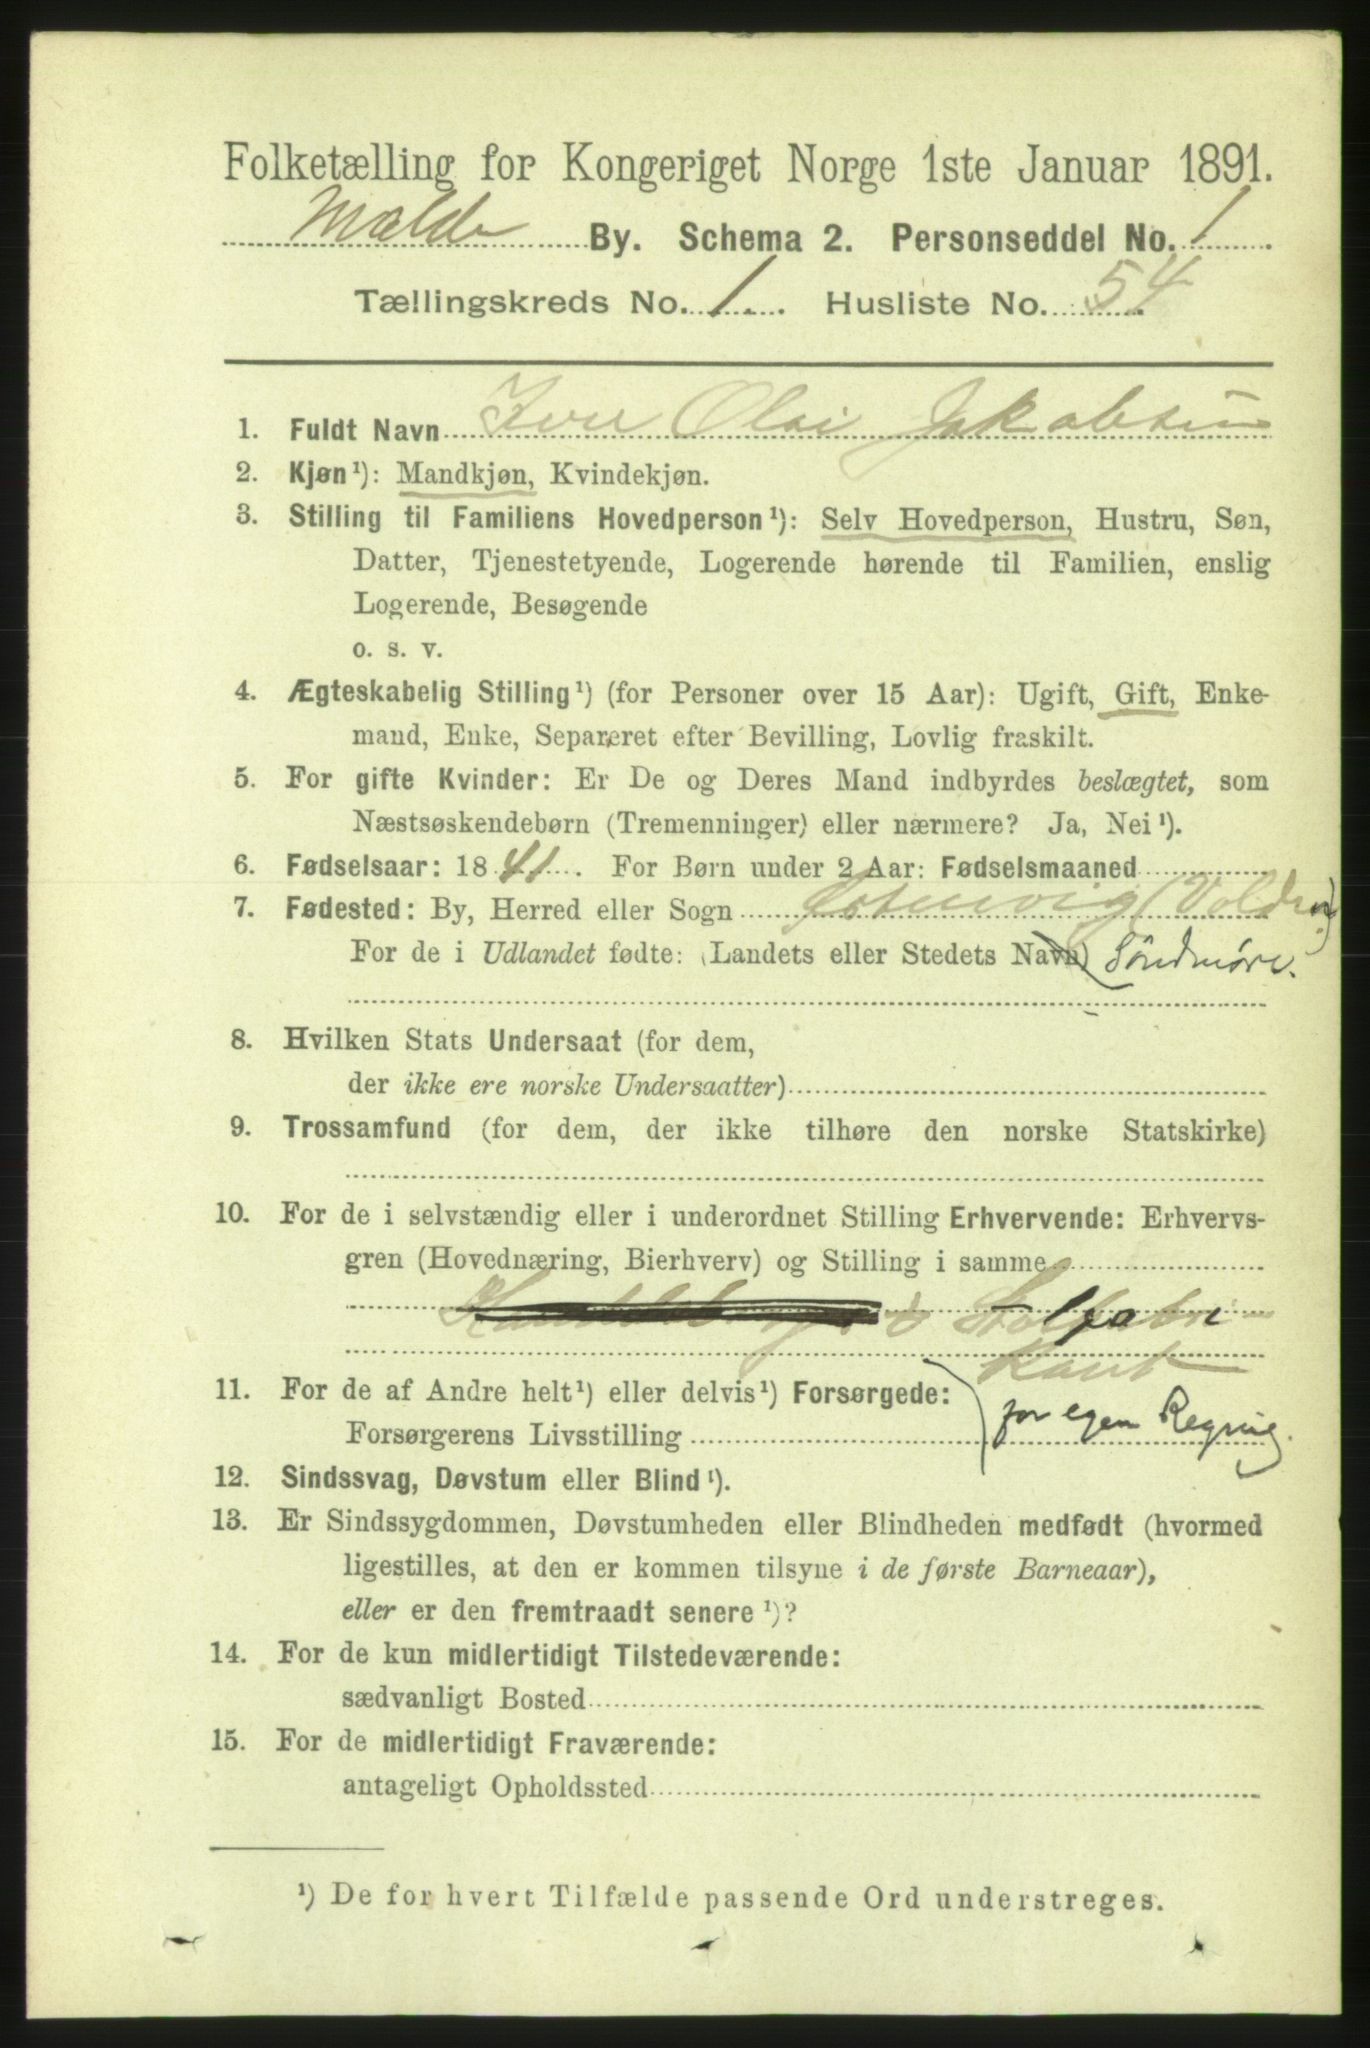 Folketælling for Kongeriget Norge 1ste Januar 1891.
Molde By. Schema 2. Personseddel No. 1
Tællingskreds No. 1. Husliste No. 54
1. Fuldt Navn Iver Olai Jakobsen
2. Kjøn¹): Mandkjøn, Kvindekjøn.
3. Stilling til Familiens Hovedperson¹): Selv Hovedperson, Hustru, Søn,
Datter, Tjenestetyende, Logerende hørende til Familien, enslig
Logerende, Besøgende
o. s. v.
4. Ægteskabelig Stilling¹) (for Personer over 15 Aar): Ugift, Gift, Enke-
mand, Enke, Separeret efter Bevilling, Lovlig fraskilt.
5. For gifte Kvinder: Er De og Deres Mand indbyrdes beslægtet, som
Næstsøskendebørn (Tremenninger) eller nærmere? Ja, Nei¹).
6. Fødselsaar: 1841. For Børn under 2 Aar: Fødselsmaaned
7. Fødested: By, Herred eller Sogn (Volden)
For de i Udlandet fødte: (Landets eller Stedets Navn) Söndmöre.
8. Hvilken Stats Undersaat (for dem,
der ikke ere norske Undersaatter)
9. Trossamfund (for dem, der ikke tilhøre den norske Statskirke)
10. For de i selvstændig eller i underordnet Stilling Erhvervende: Erhvervs-
gren (Hovednæring, Bierhverv) og Stilling i samme
Stolfabri-
kant
11. For de af Andre helt¹) eller delvis¹) Forsørgede:
for egen Regning.
Forsørgerens Livsstilling
12. Sindssvag, Døvstum eller Blind¹).
13. Er Sindssygdommen, Døvstumheden eller Blindheden medfødt (hvormed
ligestilles, at den er kommen tilsyne i de første Barneaar),
eller er den fremtraadt senere¹)?
14. For de kun midlertidigt Tilstedeværende:
sædvanligt Bosted
15. For de midlertidigt Fraværende:
antageligt Opholdssted
¹) De for hvert Tilfælde passende Ord understreges.